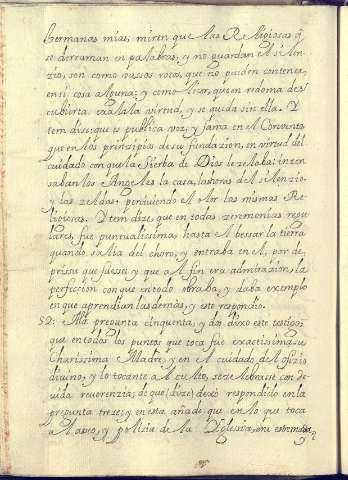 Hermanas mias, miren que las Religiosas q̃
se derraman en palabras, y no guardan el silen
zio, son como vassos rotos, que no pueden contener
en si cosa alguna; y como licor, que en redoma des
cubierta exala la virtud, y se queda sin ella. Y
tem dize: que es publica voz, y fama en el Convento
que en los prinzipios de su fundazion, en virtud del
cuidado con que la Sierba de Dios le zelaba: inzen
saban los Angeles la casa, las oras del silenzio,
y las zeldas, perziviendo el olor las mismas Re
ligiosas. Ytem dize, que en todas ziremonias regu
lares, fue puntualissima, hasta el bessar la tierra
quando salia del choro, y entraba en el, por de
prissa que fuesse; y que al fin era admirazion, la
perfeccion con que en todo obraba, y daba exemplo
en que aprendian las demas, y esto respondio.
52: A la pregunta cinquenta, y dos dixo este testigo:
que en todos los puntos que toca fue exactissima su
Charissima Madre, y en el cuidado del ofizio
divino, y lo tocante al culto, se zelebrasse con de
vida reverenzia; de que (dize) dexo respondido en la
pregunta treze; y en esta añade: que en lo que toca
al aseo, y polizia de la Yglesia, era estremada